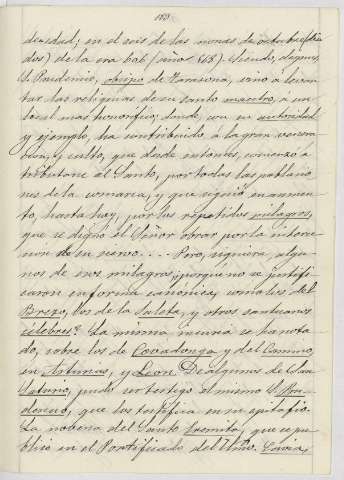 103.
de edad; en el seis de las nonas de octubre (día
dos) de la era 606 (año 568). Siendo, después,
S. Prudencio, obispo de Tarazona, vino a levan
tar las reliquias de su santo maestro, á un
local mas honorífico, donde, con su autoridad
y ejemplo, ha contribuido á la gran venera
ción, y culto, que desde entonces, comenzó á
tributarse al Santo, por todas las poblacio
nes de la comarca, y que siguió en aumen
to, hasta hoy, por los repetidos milagros,
que se dignó el Señor obrar por la interce
sion de su siervo. . . . Pero, siquiera, algu
nos de esos milagros, porque no se justifi
caron en forma canónica, como los del
Brezo, los de la Saleta, y otros santuarios
célebres? La misma incuria se ha nota
do, sobre los de Covadonga y del Camino,
en Asturias, y León. De algunos de San
Saturio, pudo ser testigo el mismo S. Pru-
dencio, que los testifica en su epitafio.
La nobena del Santo Eremita, que se pu
blicó en el Pontificado del Ilmo.